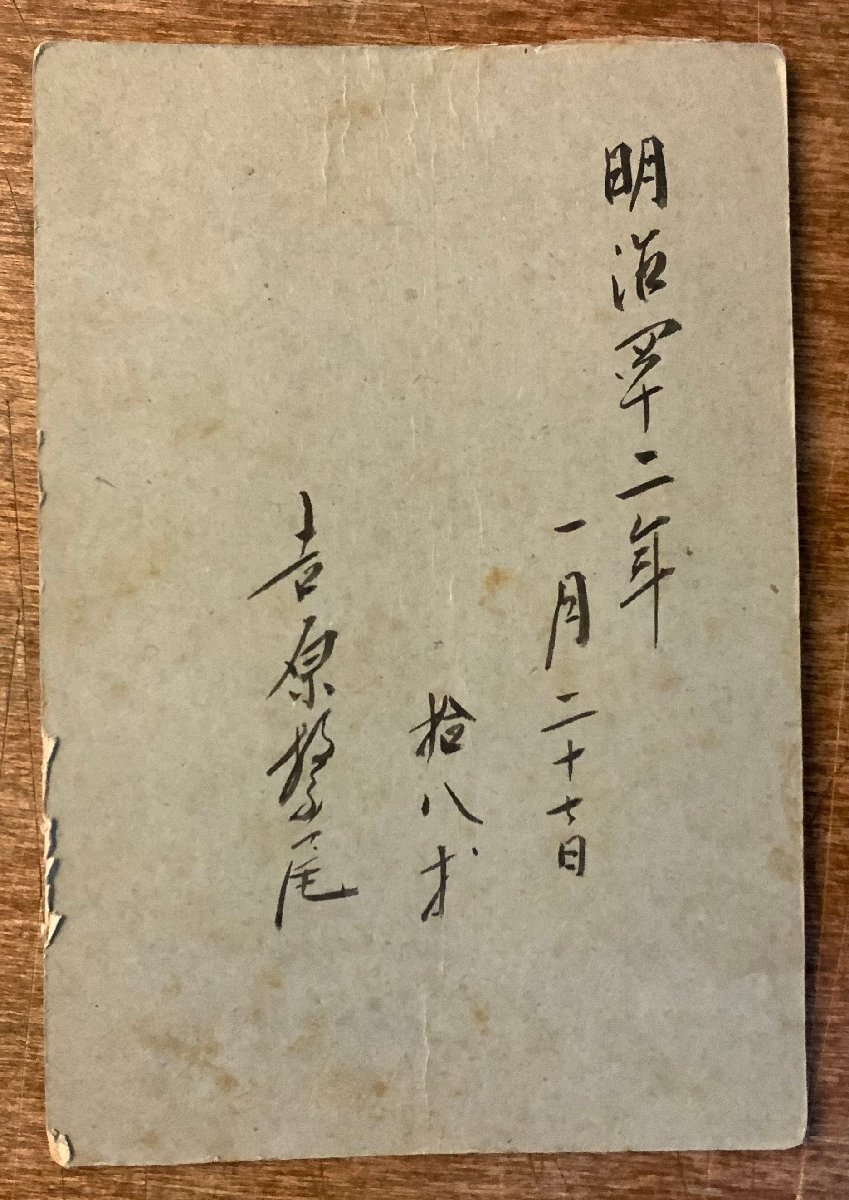 明治四十二年
一月二十七日
拾八才
吉原繁尾